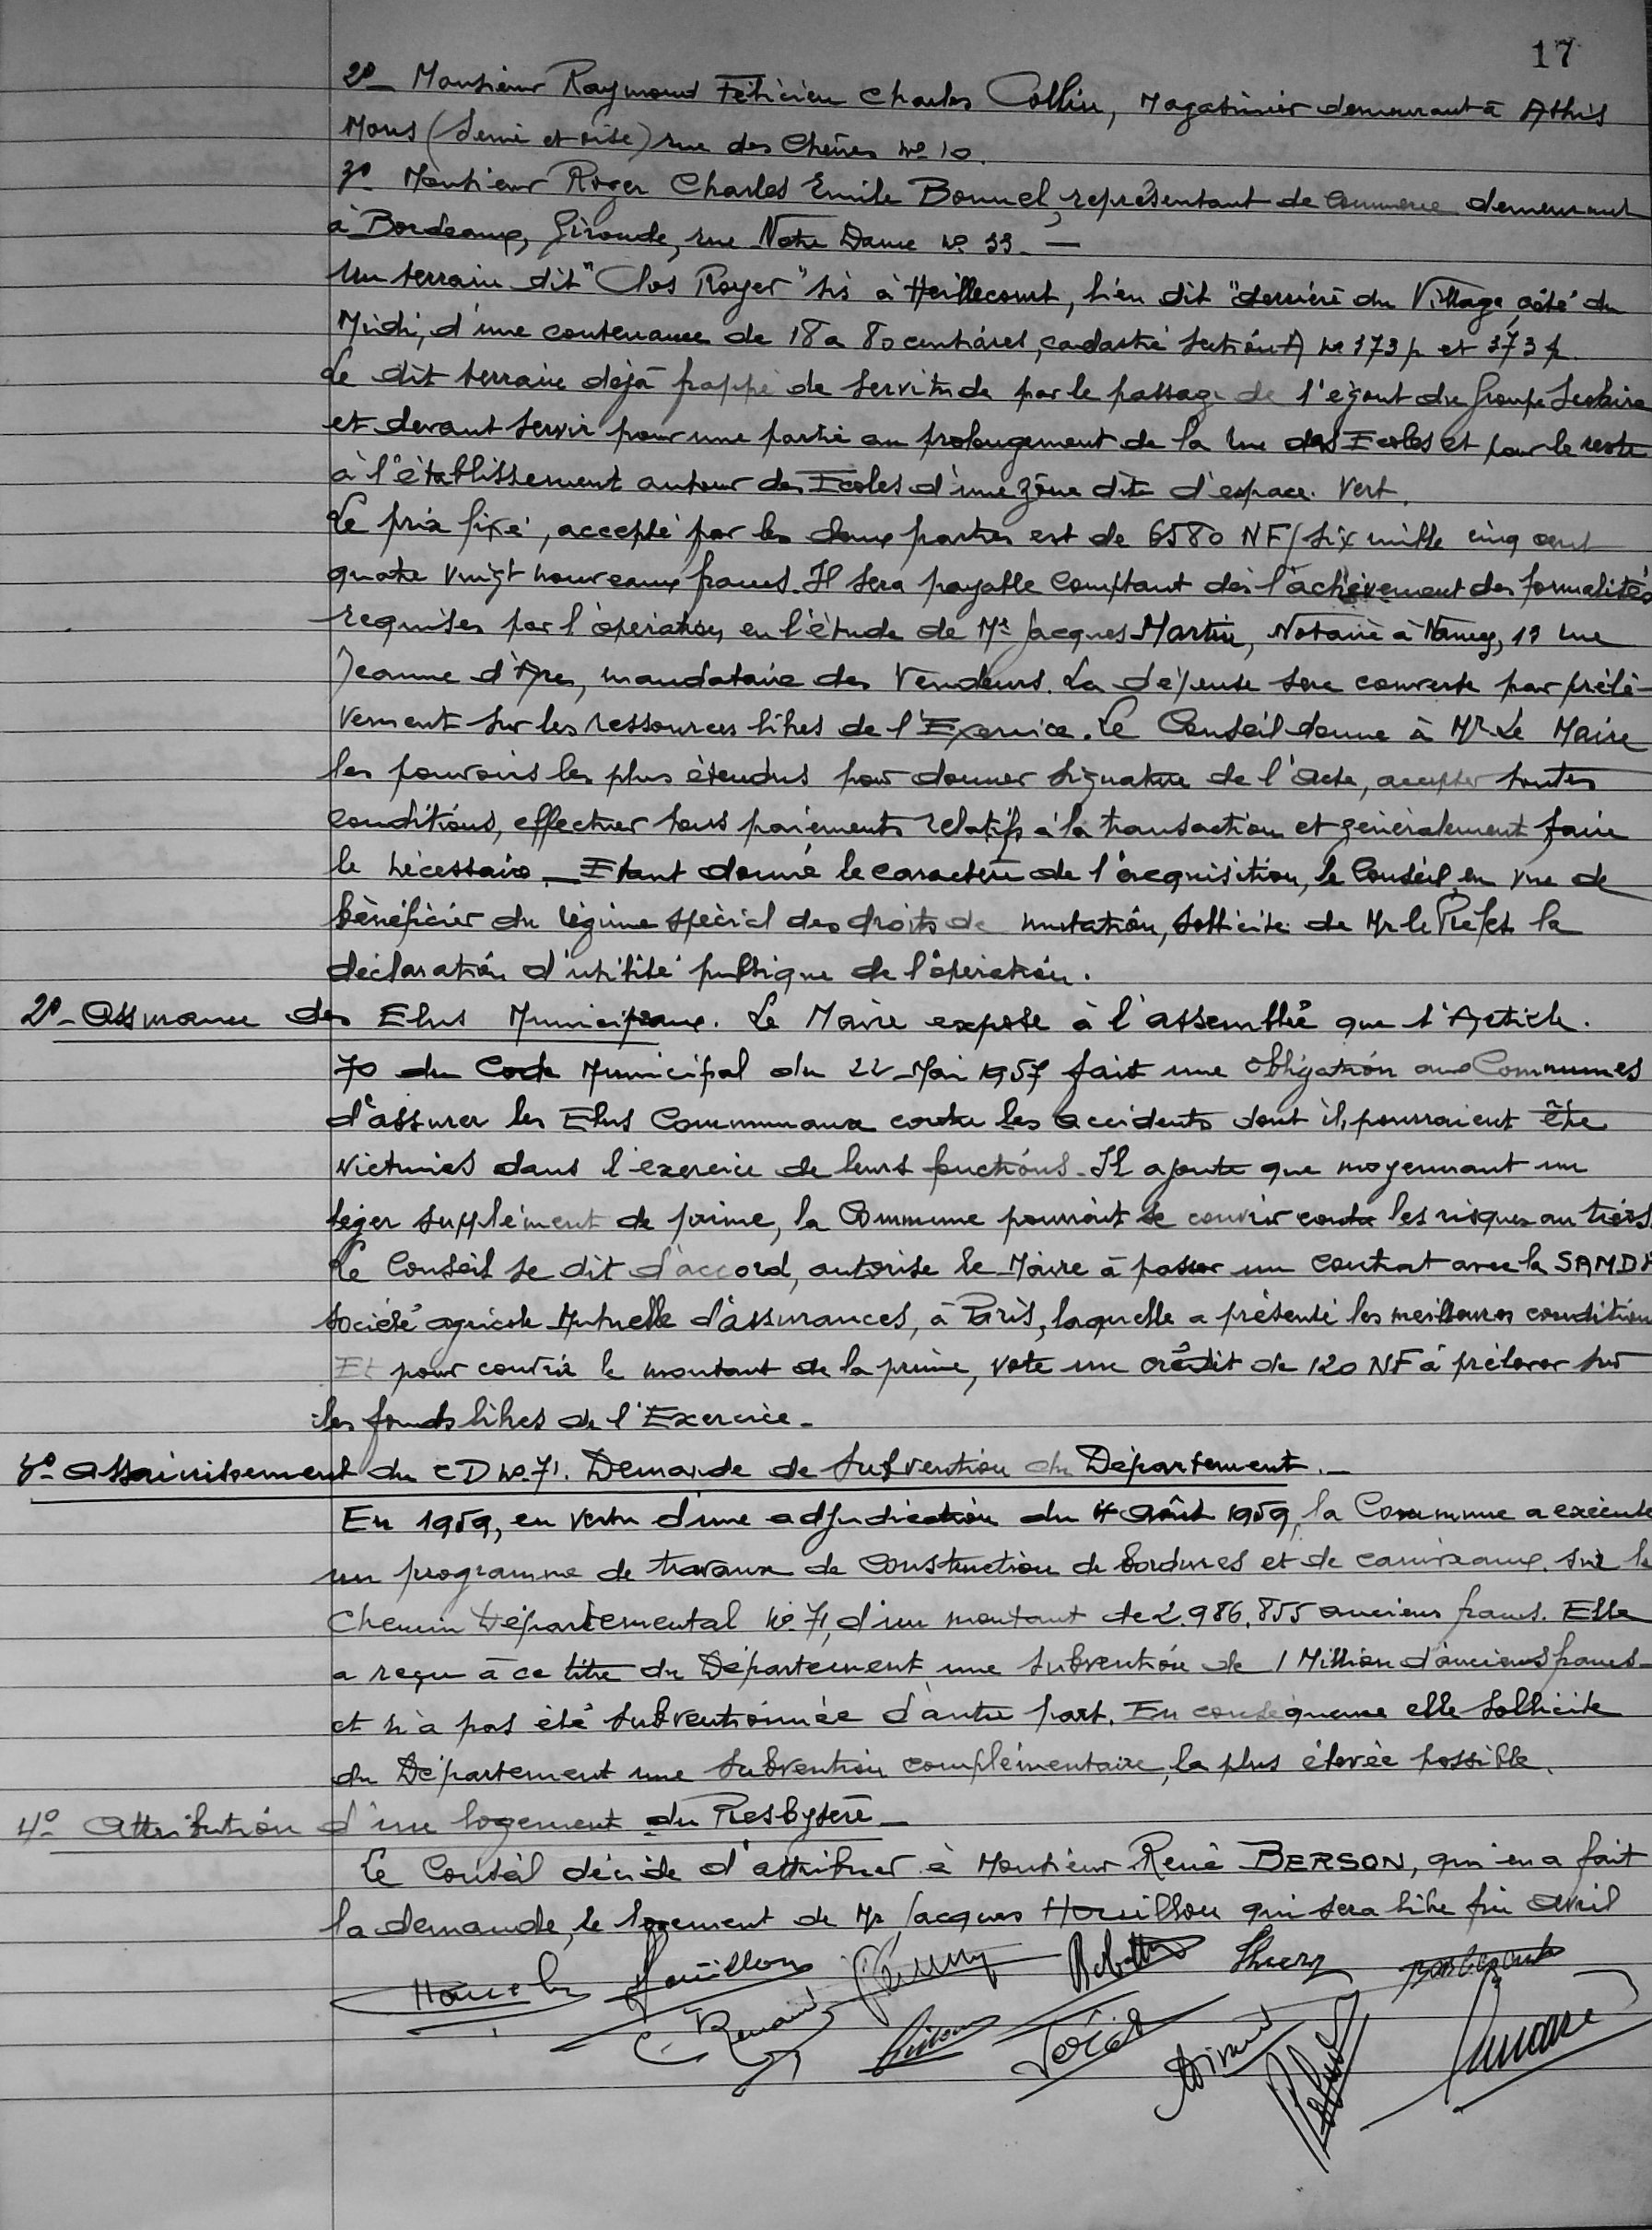 17
2º_ Monsieur Raymond Félicien Charles Collin, Magasinier demeurant à Athis
Mons (Seine et oise) rue des Chênes Nº 10.
3º_ Monsieur Roger Charles Emile Bonnel, représentant de Commerce demeurant
à Bordeaux, Gironde, rue Notre Dame Nº 33. —
Un terrain dit "Clos Royer" sis à Heillecourt, lieu dit "derrière du Village, côté du
Midi, d'une contenance de 18 a 80 centiares, cadastré Section A Nº 373 p et 373 p.
Le dit terrain déjà frappé de servitude par le passage de l'égout du Groupe Scolaire
et devant servir pour une partie au prolongement de la rue des Ecoles et pour le reste
à l'établissement autour des Ecoles d'une zône dite d'espace vert.
Le prix fixé, accepté par les deux parties est de 6580 NF (six mille cinq cent
quatre vingt nouveaux francs. Il sera payable comptant dès l'achèvement des formalités
requises par l'opération, en l'étude de Me Jacques Martin, Notaire à Nancy, 19 rue
Jeanne d'Arc, mandataire des Vendeurs. La dépense sera couverte par prélè-
vement sur les ressources libres de l'Exercice. Le Conseil donne à Mr Le Maire
les pouvoirs les plus étendus pour donner signature de l'acte, accepter toutes
conditions, effectuer tous paiements relatifs à la transaction et généralement faire
le nécessaire _ Etant donné le caractère de l'acquisition, le Conseil, en vue de
bénéficier du régime spécial des droits de mutation, sollicite de Mr le Préfet la
déclaration d'utilité publique de l'opération.
2º_ Assurance des Elus Municipaux. Le Maire expose à l'assemblée que l'Article
70 du Code Municipal du 22 Mai 1957 fait une obligation aux Communes
d'assurer les Elus Communaux contre les accidents dont ils pourraient être
victimes dans l'exercice de leurs fonctions. Il ajoute que moyennant un
léger supplément de prime, la Commune pourrait se couvrir contre les risques au tiers.
Le Conseil se dit d'accord, autorise le Maire à passer un contrat avec la SAMDA
société agricole Mutuelle d'assurances, à Paris, laquelle a présenté les meilleures conditions
Et pour couvrir le montant de la prime, vote un crédit de 120 NF à prélever sur
les fonds libres de l'Exercice.
3º_ Assainissement du CD Nº 71. Demande de Subvention du Département. _
En 1959, en vertu d'une adjudication du 4 Août 1959, la Commune a exécuté
un programme de travaux de construction de bordures et de caniveaux sur le
Chemin Départemental Nº 71, d'un montant de 2.986.855 anciens francs. Elle
a reçu à ce titre du Département une subvention de 1 Million d'anciens francs
et n'a pas été subventionnée d'autre part. En conséquence elle sollicite
du Département une subvention complémentaire, la plus élevée possible.
4º_ Attribution d'un logement du Presbytère _
Le Conseil décide d'attribuer à Monsieur René BERSON, qui en a fait
la demande, le logement de Mr Jacques Houillon qui sera libre fin avril
Houillon
Renaud